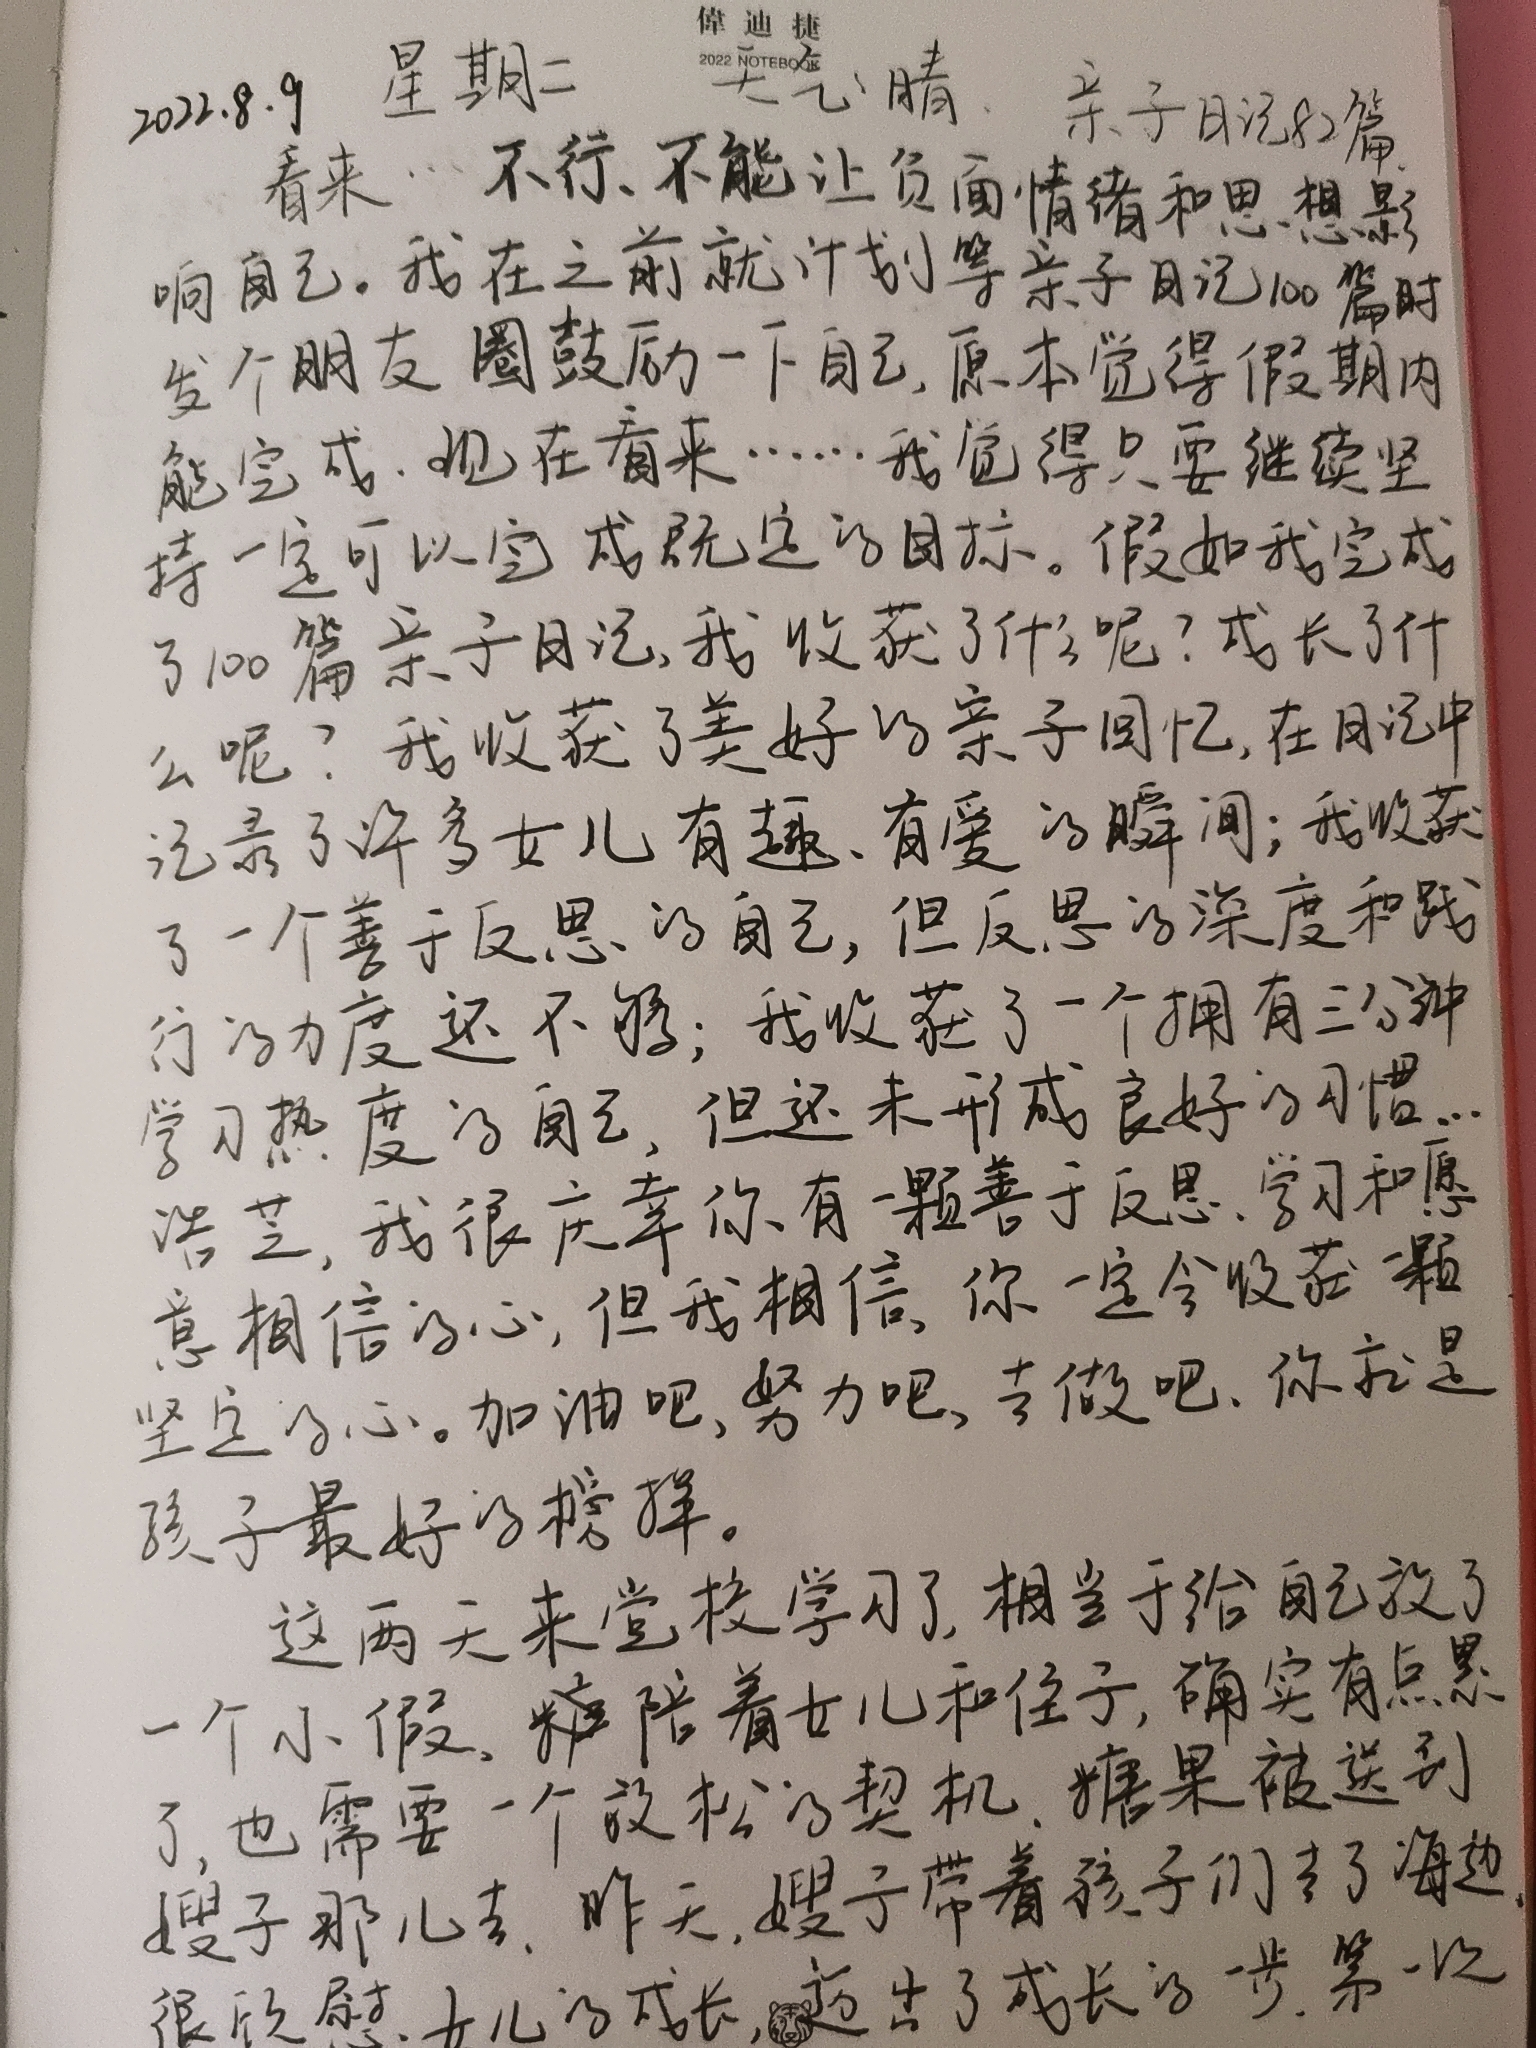 偉迪捷
2022 NOTEBOOK
2022.8.9 星期二 天气晴、亲子日记82篇、
看来…不行、不能让负面情绪和思想影
响自己。我在之前就计划等亲子日记100篇时
发个朋友圈鼓励一下自己,原本觉得假期内
能完成、现在看来……我觉得只要继续坚
持一定可以完成既定的目标。假如我完成
了100篇亲子日记,我收获了什么呢?成长了什
么呢?我收获了美好的亲子回忆,在日记中
记录了许多女儿有趣、有爱的瞬间;我收获
了一个善于反思的自己,但反思的深度和践
行的力度还不够;我收获了一个拥有三分钟
学习热度的自己,但还未形成良好的习惯…
浩芝,我很庆幸你有一颗善于反思、学习和愿
意相信的心,但我相信、你一定会收获一颗
坚定的心。加油吧、努力吧、去做吧、你就是
孩子最好的榜样。
这两天来党校学习了,相当于给自己放了
一个小假、陪着女儿和侄子,确实有点累
了,也需要一个放松的契机、糖果被送到
嫂子那儿去、昨天,嫂子带着孩子们去了海边、
很欣慰、女儿的成长,迈出了成长的一步、第一次